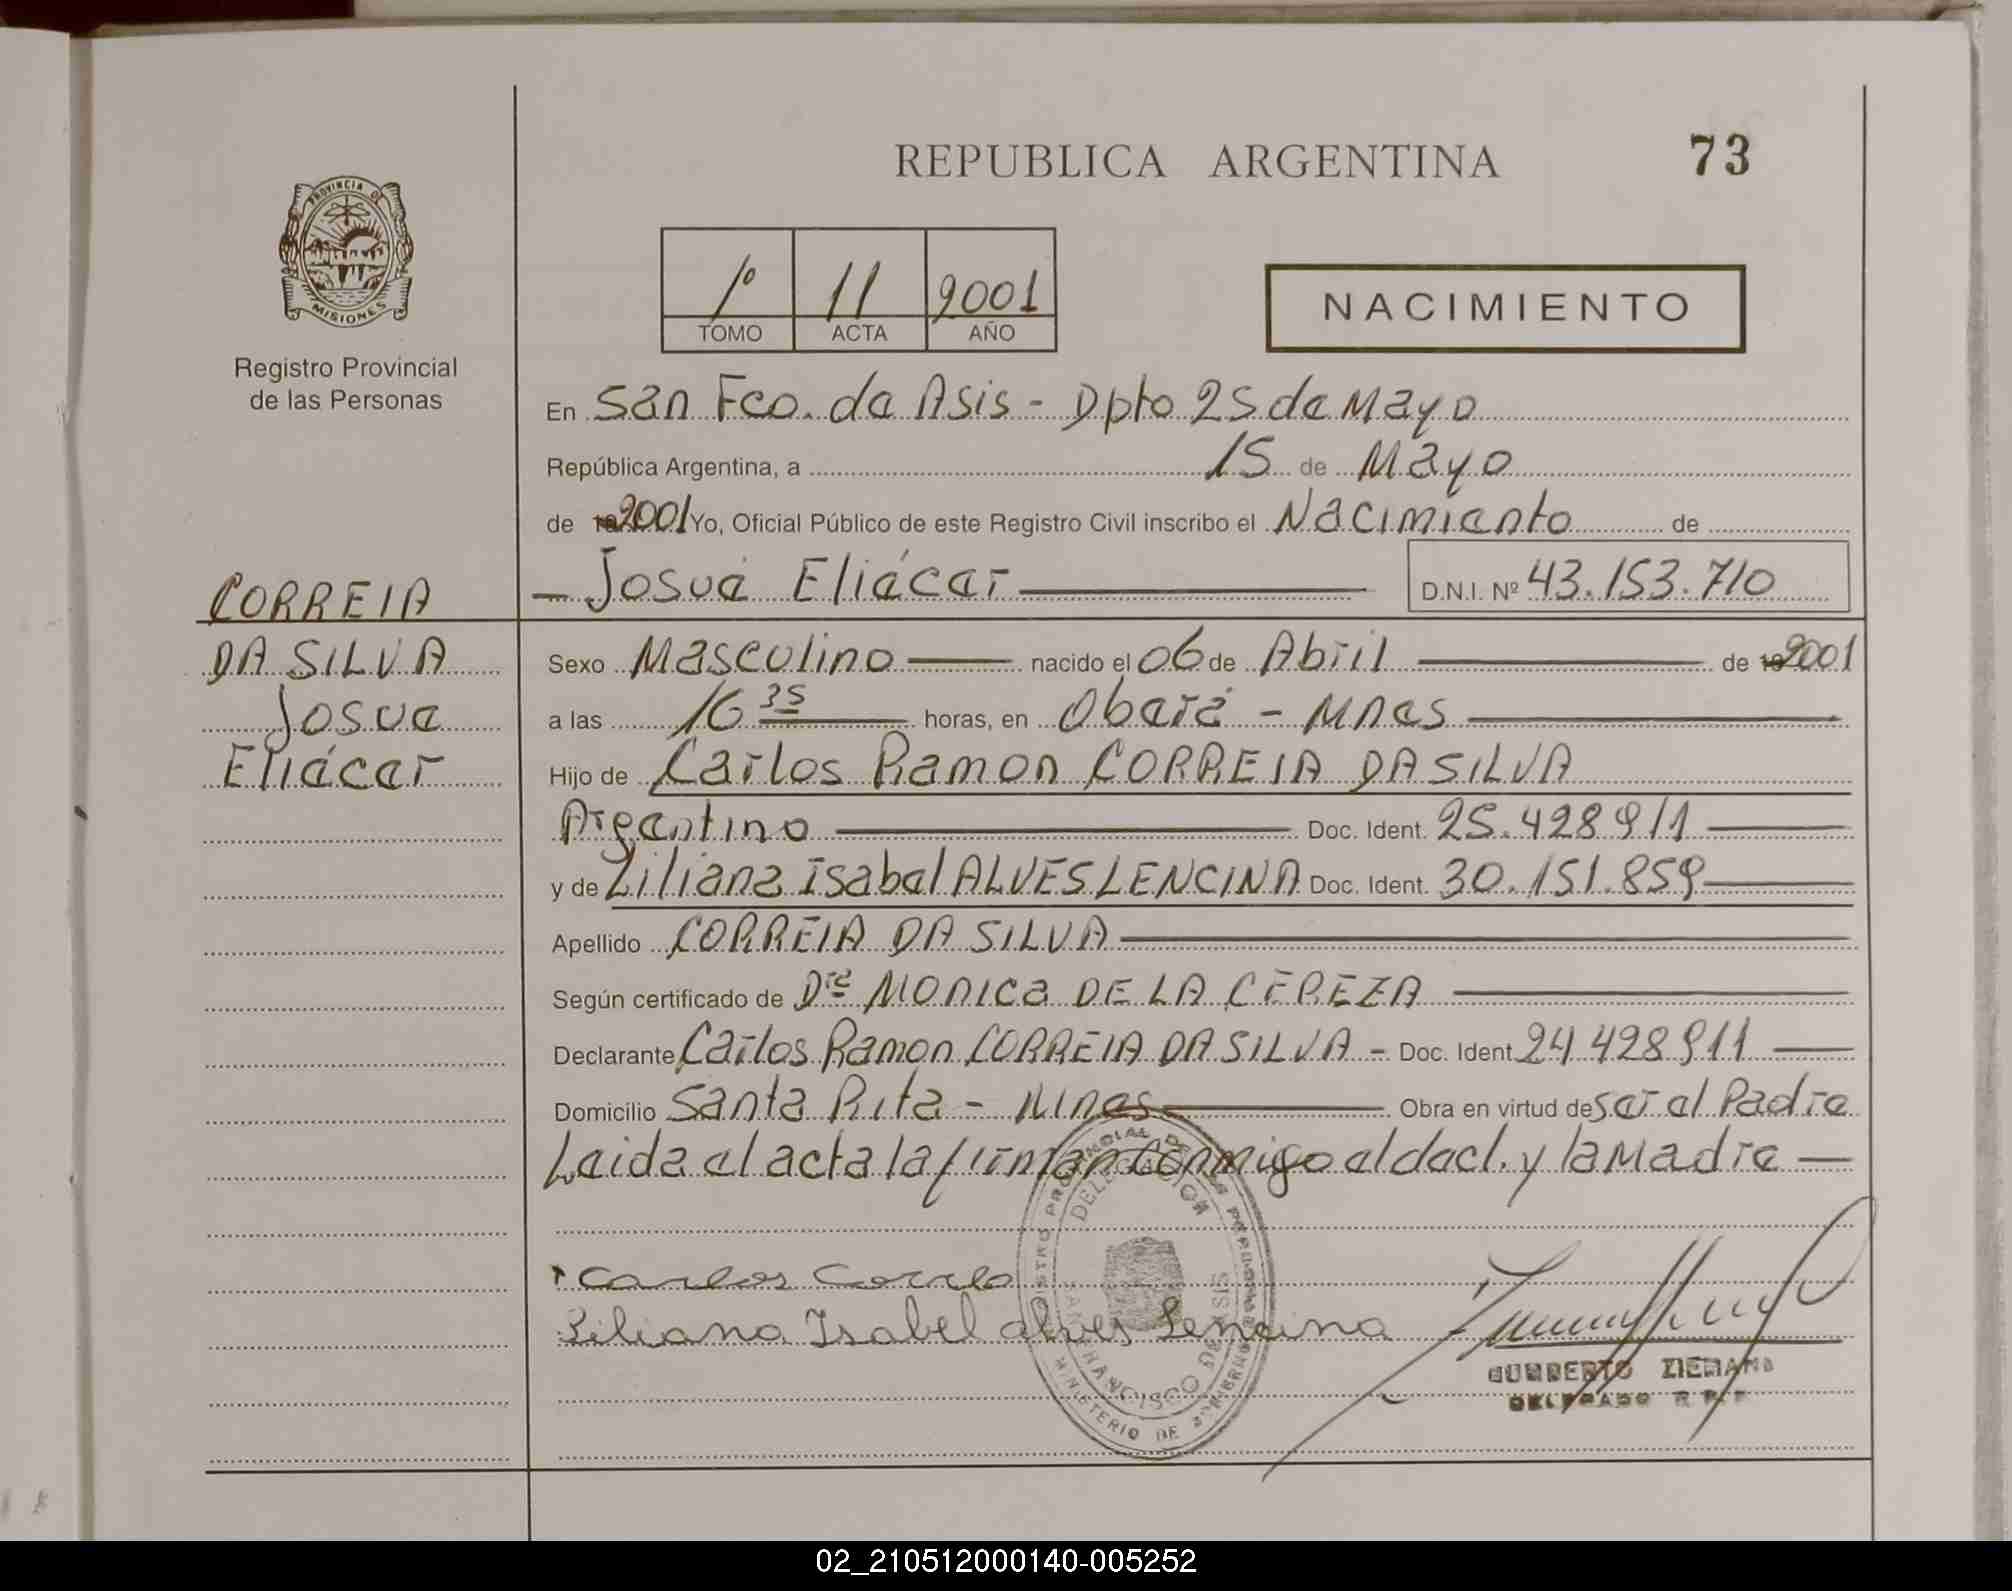 REPUBLICA ARGENTINA
73
PROVINCIA DE
MISIONES
Registro Provincial
de las Personas
1º 11 2001
TOMO ACTA AÑO
NACIMIENTO
En San Fco. de Asis - Dpto 25 de Mayo
República Argentina, a 15 de Mayo
de 19 2001 Yo, Oficial Público de este Registro Civil inscribo el Nacimiento de
Josué Eliécer D.N.I. Nº 43.153.710
CORREIA
DA SILVA
Josue
Eliécer
Sexo Masculino nacido el 06 de Abril de 19 2001
a las 16 35 horas, en Oberá - Mnes
Hijo de Carlos Ramon CORREIA DA SILVA
Argentino Doc. Ident. 25.428911
y de Liliana Isabel ALVES LENCINA Doc. Ident. 30.151.859
Apellido CORREIA DA SILVA
Según certificado de Dra MONICA DE LA CEREZA
Declarante Carlos Ramon CORREIA DA SILVA - Doc. Ident 24 428911
Domicilio Santa Rita - Mnes Obra en virtud de ser el Padre
Leida el acta la firman Conmigo el decl. y la Madre
Carlos Correa
Liliana Isabel alves Lencina
REGISTRO PROVINCIAL DE LAS PERSONAS
DELEGACION
SAN FRANCISCO DE ASIS
MINISTERIO DE GOBIERNO
HUMBERTO ZIEMANN
DELEGADO R.P.P.
02_210512000140-005252